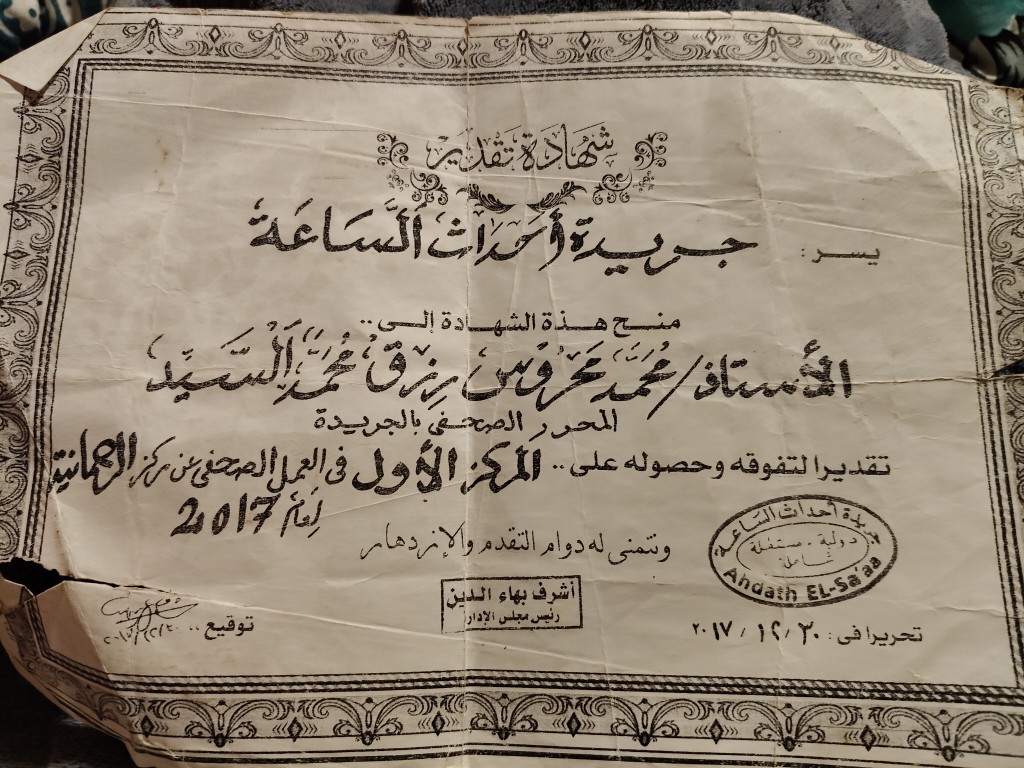 شهادة تقدير
يسر: جريدة أحداث الساعة
منح هذة الشهادة إلى..
الأستاذ/محمد محروس رزق محمد السيد
المحرر الصحفى بالجريدة
تقديرا لتفوقه وحصوله على.. المركز الأول فى العمل الصحفى عن مركز الرحمانية
لعام 2017
ونتمنى له دوام التقدم والإزدهار
جريدة أحداث الساعة
دولية - مستقلة
شاملة
Ahdath EL-Sa'aa
أشرف بهاء الدين
رئيس مجلس الإدار
تحريرا فى: ٣٠ / ١٢ / ٢٠١٧
توقيع ..